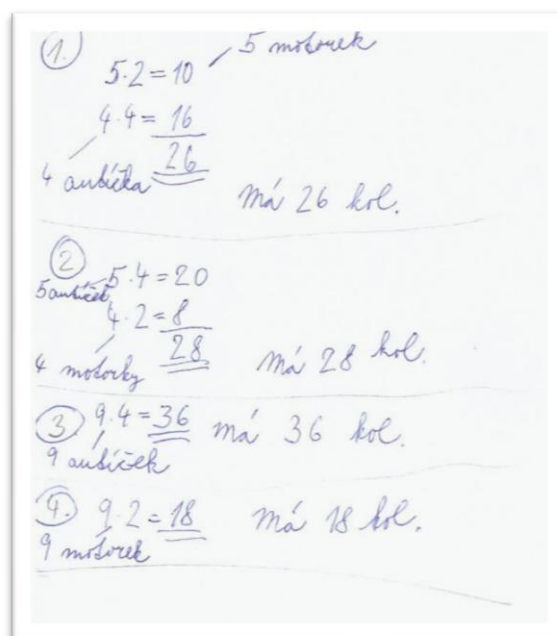 1.
5 motorek
5·2=10
4·4=16
26
4 autíčka
má 26 kol.
2
5 autíček 5·4=20
4·2=8
28
4 motorky
má 28 kol.
3. 9·4=36 má 36 kol.
9 autíček
4. 9·2=18 má 18 kol.
9 motorek